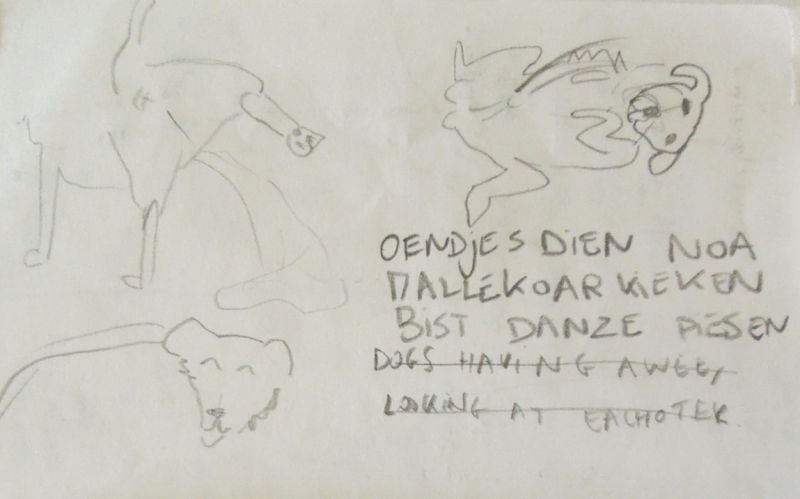 OENDJES DIEN NOA
MALLEKOAR KIEKEN
BIST DANZE PIESEN
DOGS HAVING A WEE,
LOOKING AT EACHOTER.